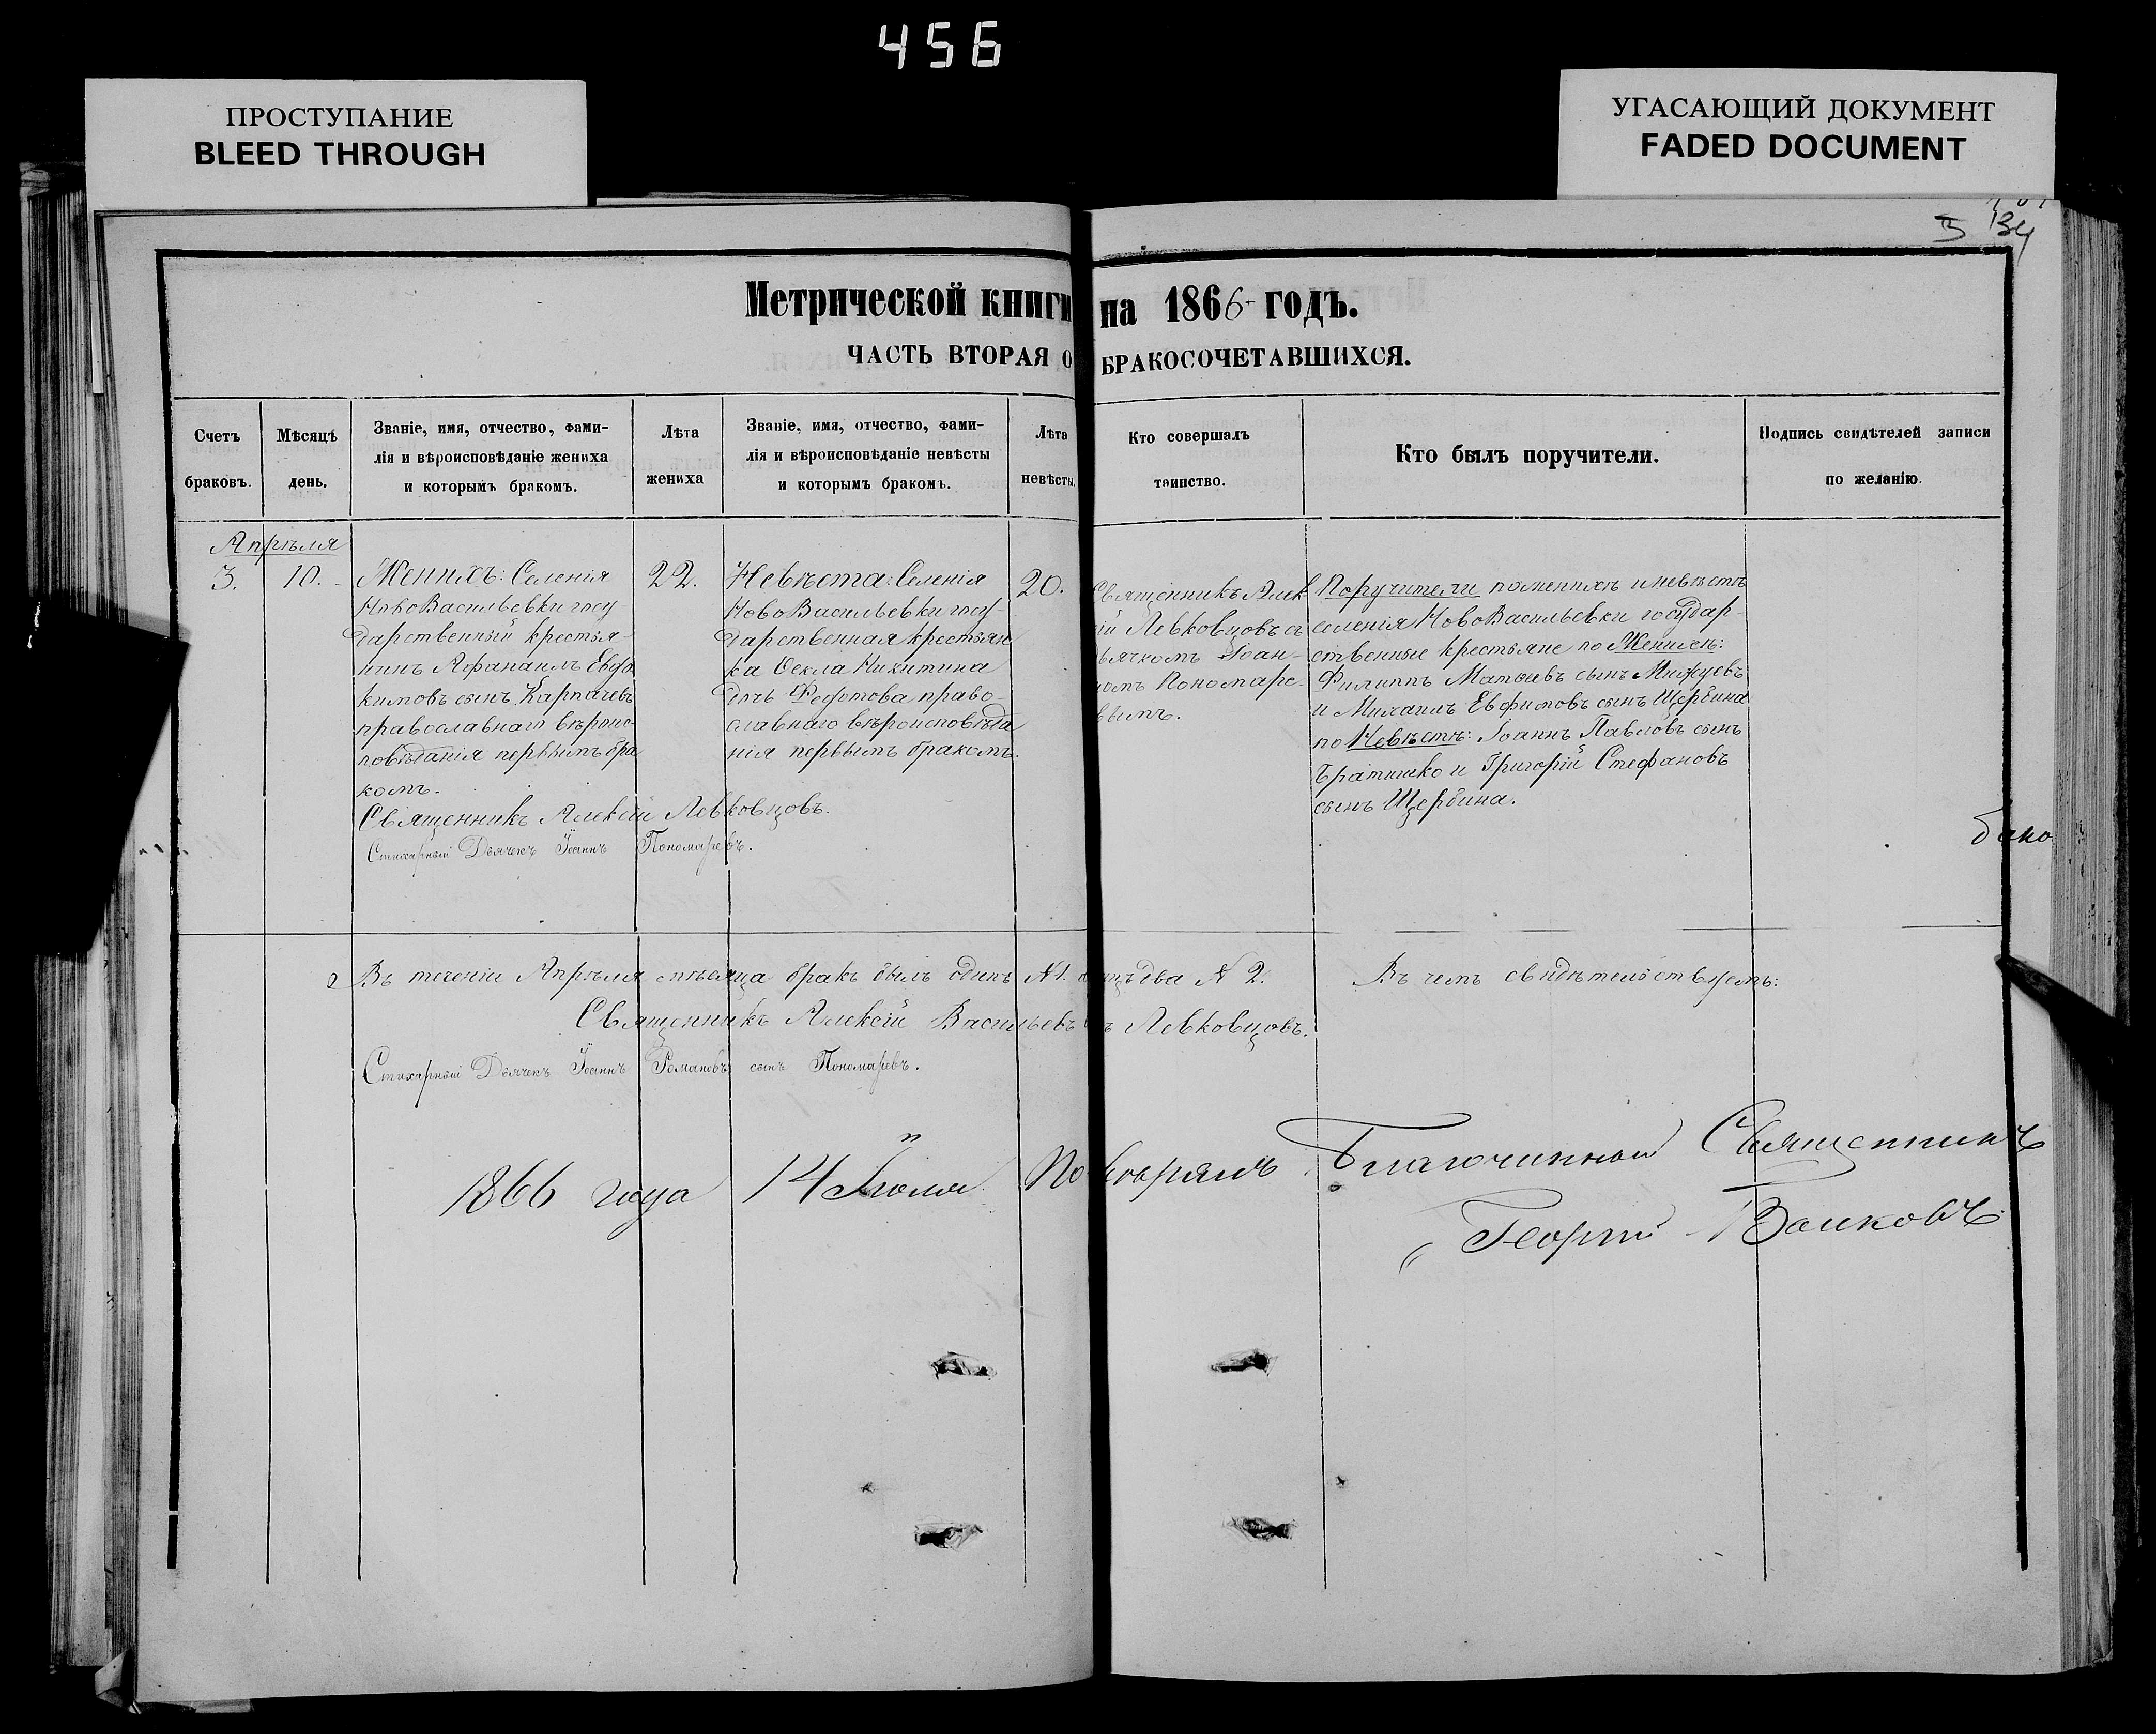 456
ПРОСТУПАНИЕ
BLEED THROUGH
УГАСАЮЩИЙ ДОКУМЕНТ
FADED DOCUMENT
134
Метрической книги на 1866 годъ.
ЧАСТЬ ВТОРАЯ О БРАКОСОЧЕТАВШИХСЯ.
Счетъ
браковъ.
Мѣсяцъ
день.
Званіе, имя, отчество, фами-
лія и вѣроисповѣданіе жениха
и которымъ бракомъ.
Лѣта
жениха
Званіе, имя, отчество, фами-
лія и вѣроисповѣданіе невѣсты
и которымъ бракомъ.
Лѣта
невѣсты.
Кто совершалъ
таинство.
Кто былъ поручители.
Подпись свидѣтелей записи
по желанію.
Апрѣля
3.
10.
Женихъ: Селенія
НовоВасильевки госу-
дарственный крестья-
нинъ Афанаилъ Евфи
кимовъ сынъ Карпачевъ
православнаго вѣроис-
повѣданія первымъ бра
комъ.
22.
Невѣста: Селенія
НовоВасильевки госу-
дарственная крестьян
ка Ѳекла Никитина
дочь Федотова право-
славнаго вѣроисповѣда
нія первымъ бракомъ.
20.
Священникъ Алек
сій Левковцовъ съ
дьячкомъ Іоан-
номъ Пономаре-
вымъ.
Поручители по женихѣ и невѣстѣ
селенія НовоВасильевки государ-
ственные крестьяне по Женихѣ:
Филиппъ Матѳеевъ сынъ
и Михаилъ Евфимовъ сынъ Щербина
по Невѣстѣ: Іоаннъ Павловъ сынъ
Братишко и Григорій Стефановъ
сынъ Щербина.
Священникъ Алексій Левковцовъ.
Стихарный Дьячекъ Іоаннъ Пономаревъ.
Въ теченіи Апрѣля мѣсяца бракъ былъ одинъ № 1. два № 2. Въ чемъ свидѣтельствуемъ:
Священникъ Алексій Васильевъ Левковцовъ.
Стихарный Дьячекъ Іоаннъ Романовъ сынъ Пономаревъ.
1866 года 14 Іюля Повѣрялъ Благочинный Священникъ
Георгій Волковъ